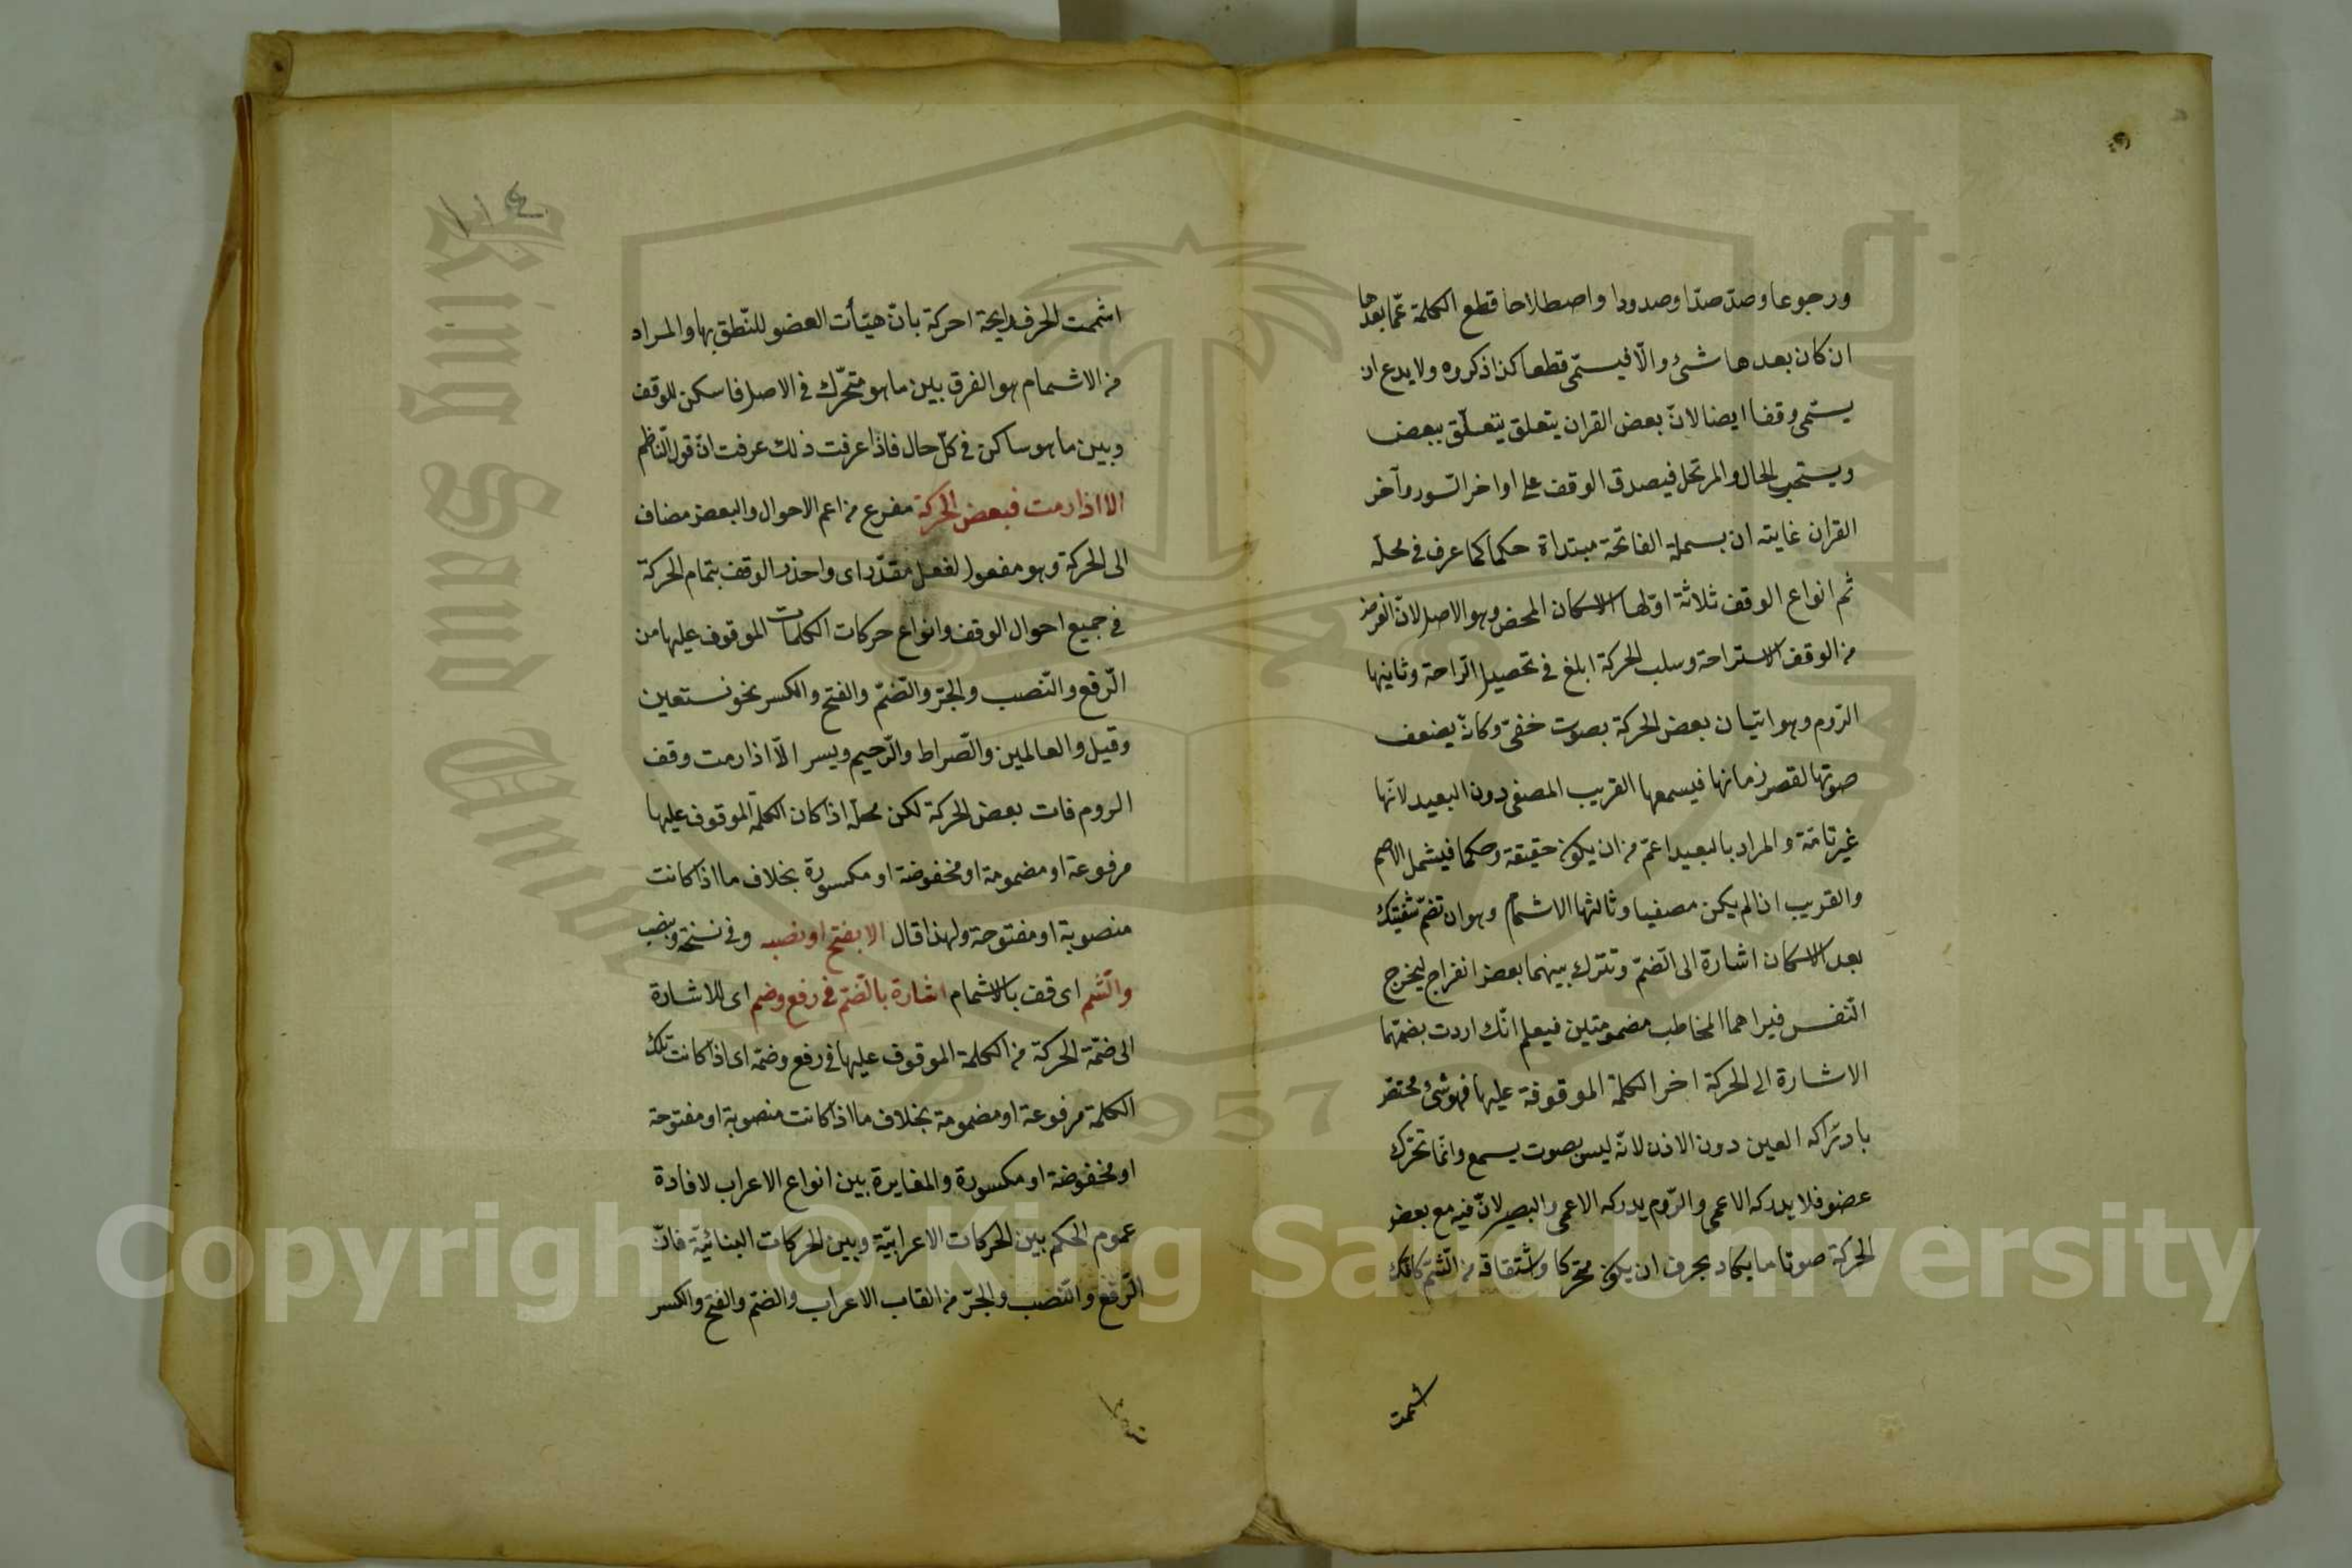 ورجوعا وصدّ صدّا وصدودا واصطلاحا قطع الكلمة عمّا بعدها
ان كان بعدها شئ والّا فيسمّى قطعا كذا ذكروه ولا يدع ان
يسمّى وقفا ايضا لانّ بعض القران يتعلق يتعلّق ببعض
ويستحب الحال والمرتحل فيصدق الوقف على اواخر السّور وآخر
القران غايته ان بسملة الفاتحة مبتداة حكما كما عرف في محلّه
ثم انواع الوقف ثلاثة اوّلها الاسكان المحض وهو الاصل لانّ الغرض
من الوقف الاستراحة وسلب الحركة ابلغ في تحصيل الرّاحة وثانيها
الرّوم وهو اتيان بعض الحركة بصوت خفىّ وكانّ يضعف
صوتها لقصر زمانها فيسمعها القريب المصغى دون البعيد لانّها
غير تامّة والمراد بالبعيد اعمّ من ان يكون حقيقة وحكما فيشمل الاصم
والقريب اذا لم يكن مصغيا وثالثها الاشمام وهو ان تضمّ شفتيك
بعد الاسكان اشارة الى الضّمّ وتترك بينهما بعض انفراج ليخرج
النّفس فيراهما المخاطب مضمومتين فيعلم انّك اردت بضمّهما
الاشارة الى الحركة اخر الكلمة الموقوفة عليها فهو شئ مختصّ
بادراكه العين دون الاذن لانّه ليس بصوت يسمع وانّما تحرّك
عضو فلا يدركه الاعمى والرّوم يدركه الاعمى والبصير لانّ فيه مع بعض
الحركة صوتا ما يكاد بحرف ان يكون متحركا واشتقاقه من الشّمّ كانّك
اشممت
١١٤
اشممت الحرف رايحة احركة بانّ هيّأت العضو للنّطق بها والمراد
من الاشمام هو الفرق بين ما هو متحرّك في الاصل فاسكن للوقف
وبين ما هو ساكن في كلّ حال فاذا عرفت ذلك عرفت انّ قول النّاظم
الا اذا رمت فبعض الحركة مفرع من اعم الاحوال والبعض مضاف
الى الحركة وهو مفعول لفعل مقدّر اى واحذر الوقف بتمام الحركة
في جميع احوال الوقف وانواع حركات الكلمات الموقوف عليها من
الرّفع والنّصب والجرّ والضّمّ والفتح والكسر نحو نستعين
وقيل والعالمين والصّراط والرّحيم ويسر الّا اذا رمت وقف
الروم فات بعض الحركة لكن محلّه اذا كان الكلمة الموقوف عليها
مرفوعة او مضمومة او مخفوضة او مكسورة بخلاف ما اذا كانت
منصوبة او مفتوحة ولهذا قال الا بفتح او بنصب وفي نسخة وبنصب
واشم اى قف بالاشمام اشارة بالضّمّ في رفع وضم اى للاشارة
الى ضمّة الحركة من الكلمة الموقوف عليها في رفع وضمّ اى اذا كانت تلك
الكلمة مرفوعة او مضمومة بخلاف ما اذا كانت منصوبة او مفتوحة
او مخفوضة او مكسورة والمغايرة بين انواع الاعراب لافادة
عموم الحكم بين الحركات الاعرابيّة وبين الحركات البنائيّة فانّ
الرّفع والنّصب والجرّ من القاب الاعراب والضّمّ والفتح والكسر
Copyright © King Saud University
1957